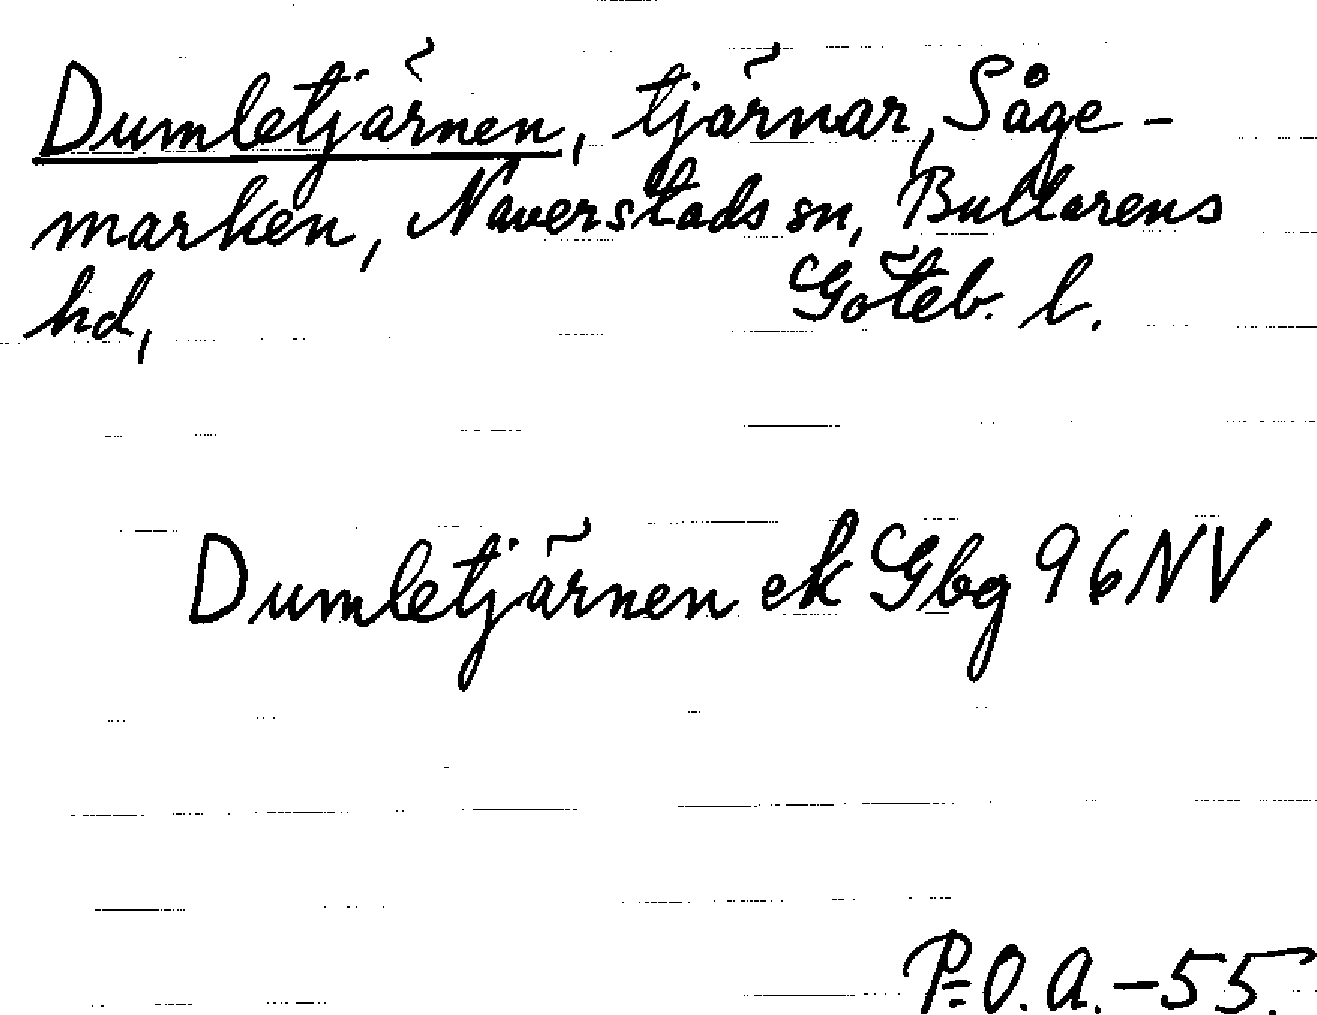 Dumletjärnen, tjärnar, Såge-
marken, Naverstads sn, Bullarens
hd, Göteb. l.
Dumletjärnen ek Gbg 96NV
P=O.A.-55.